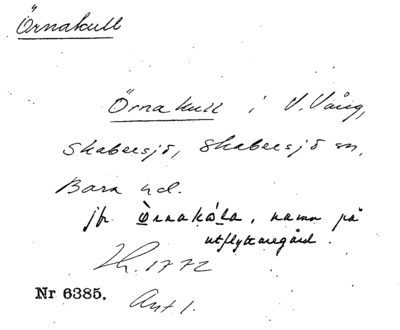 Örnakull
Örnakull i V. Vång,
Skabersjö, Skabersjö sn,
Bara hd.
jfr Òrnakúla, namn på
utflyttaregård.
1772
Nr 6385. Ant 1.